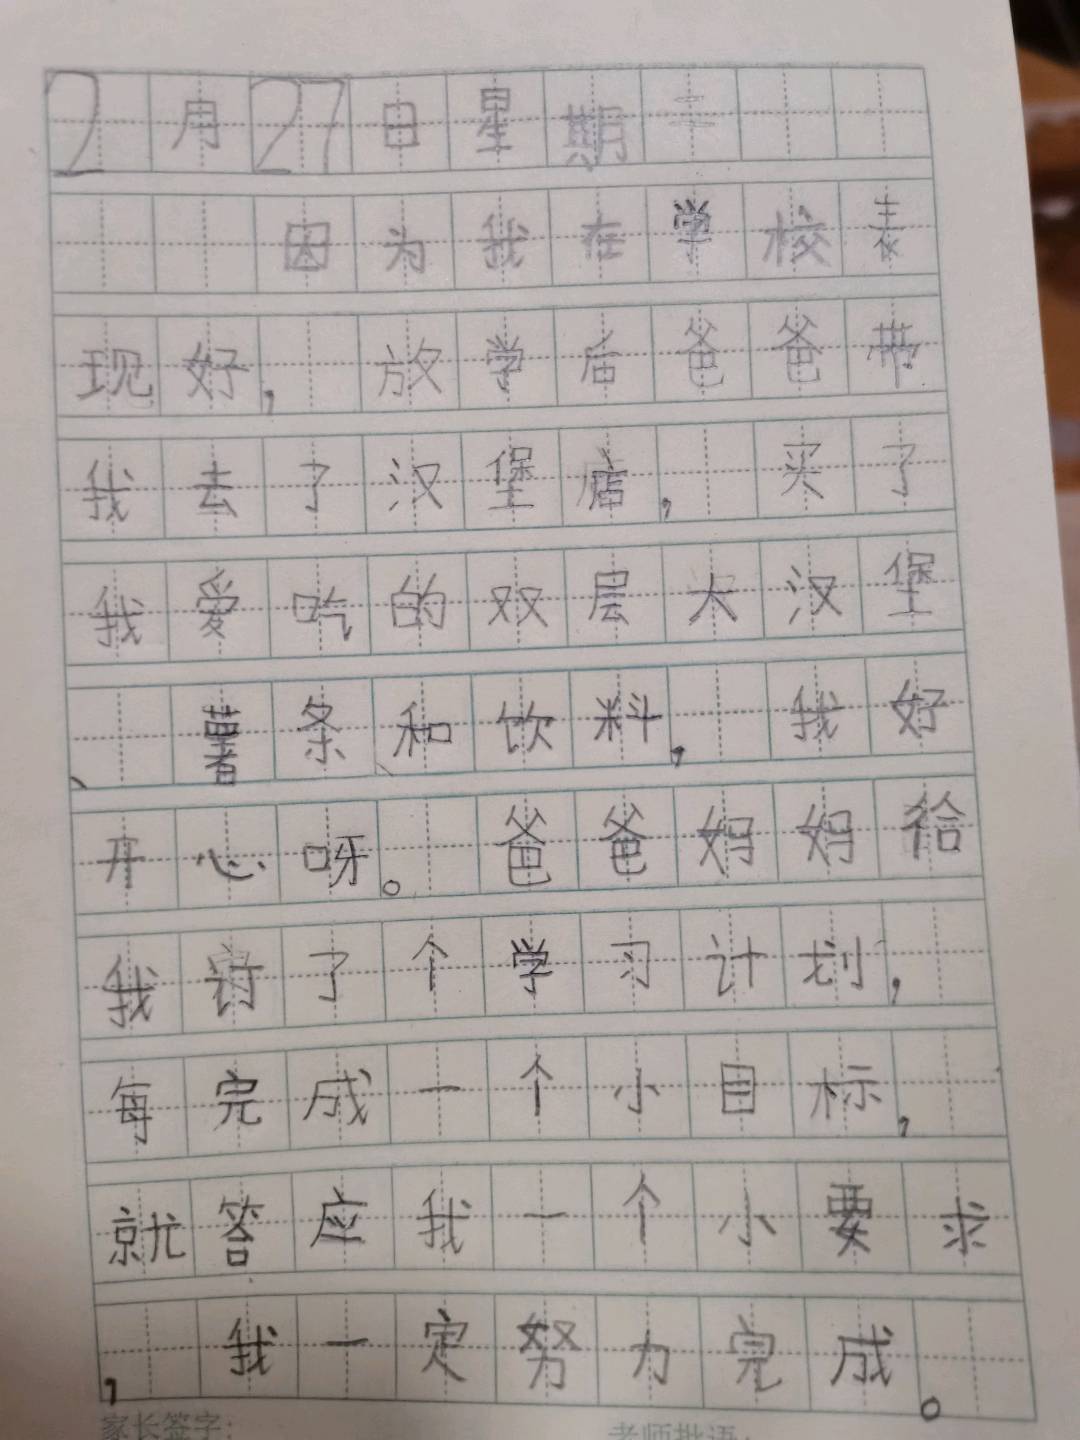 2月27日星期二
因为我在学校表
现好,放学后爸爸带
我去了汉堡店,买了
我爱吃的双层大汉堡
、薯条和饮料,我好
开心呀。爸爸妈妈给
我订了个学习计划,
每完成一个小目标,
就答应我一个小要求
,我一定努力完成。
家长签字: 老师批语: